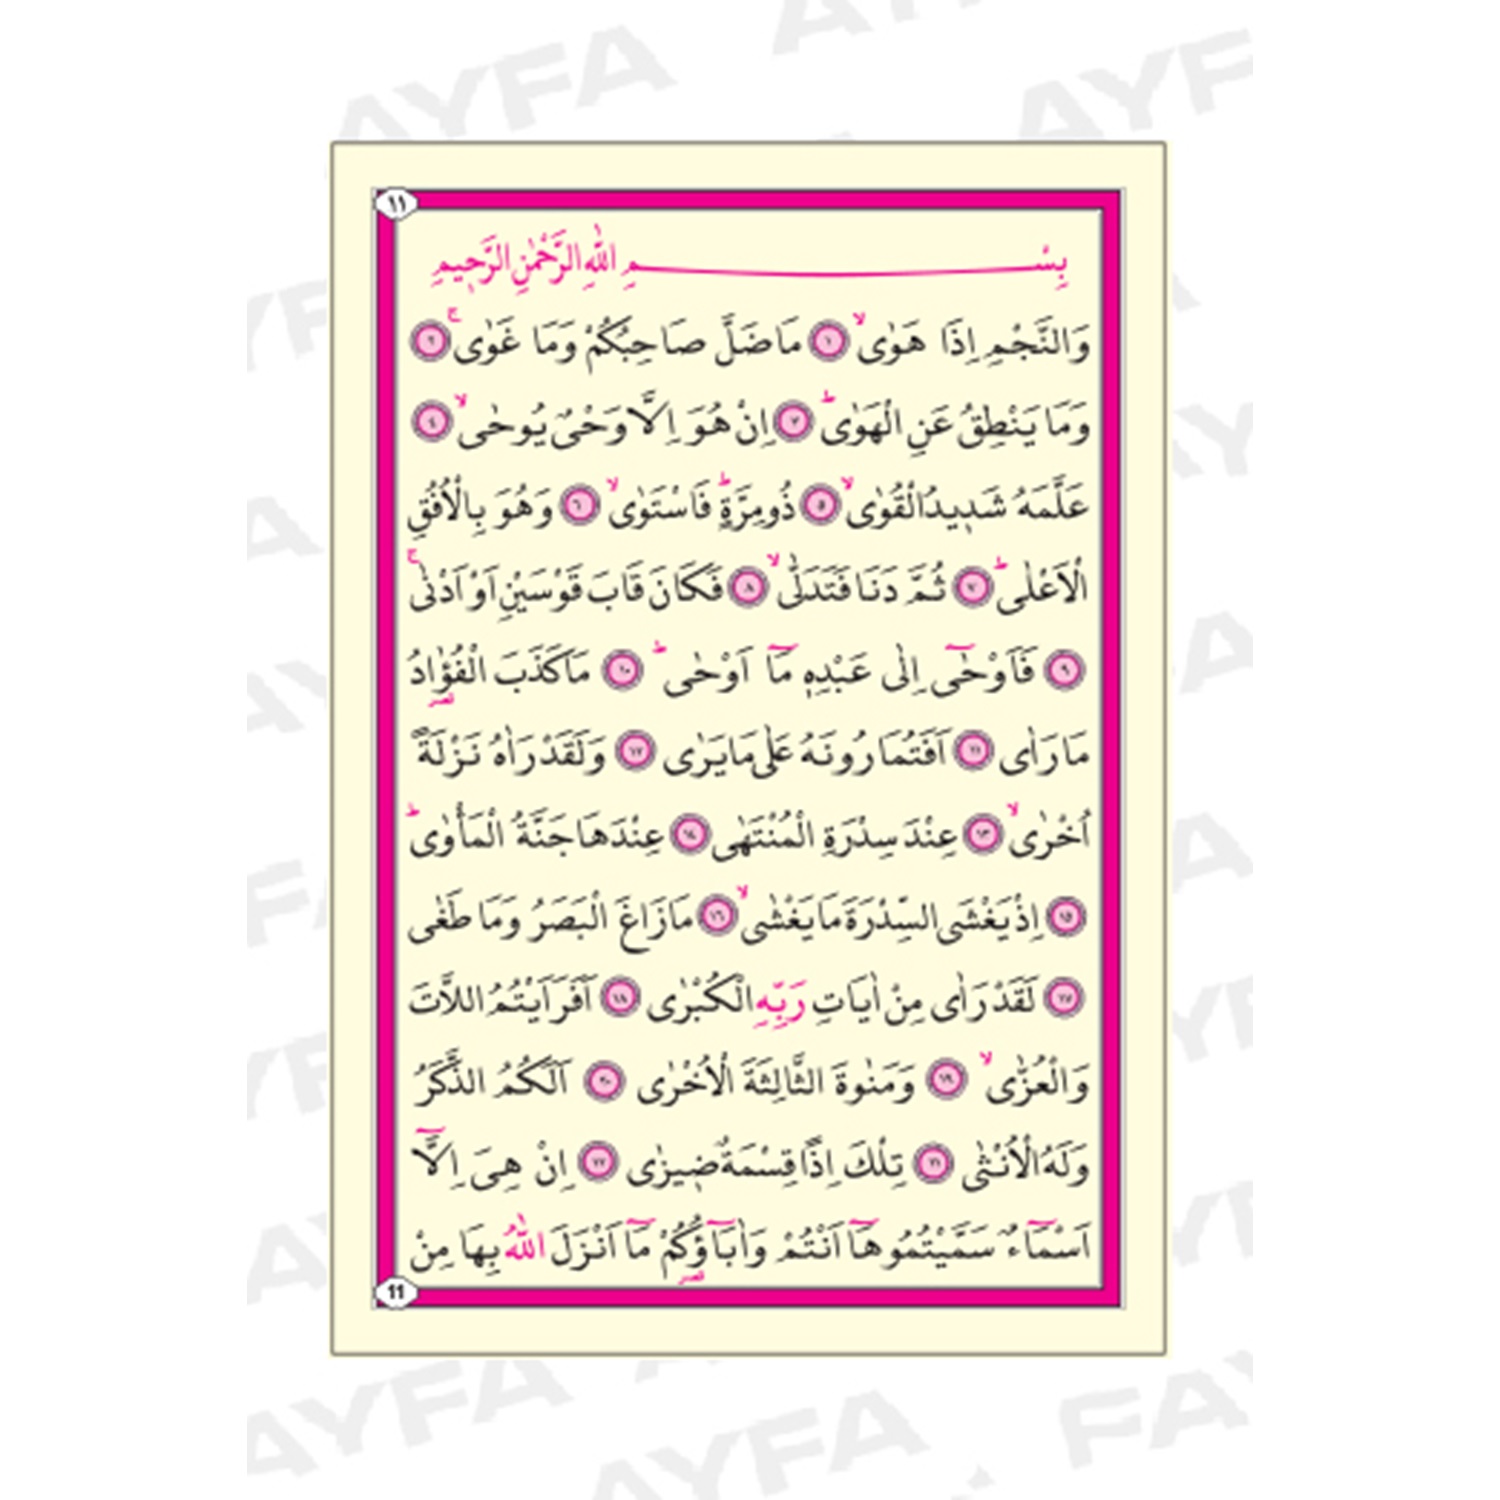 FAYFA
FAYFA
١١
بِسْمِ اللّٰهِ الرَّحْمٰنِ الرَّحٖيمِ
وَالنَّجْمِ اِذَا هَوٰى ۙ ١ مَا ضَلَّ صَاحِبُكُمْ وَمَا غَوٰى ۚ ٢
وَمَا يَنْطِقُ عَنِ الْهَوٰى ۜ ٣ اِنْ هُوَ اِلَّا وَحْىٌ يُوحٰى ۙ ٤
عَلَّمَهُ شَدٖيدُ الْقُوٰى ۙ ٥ ذُو مِرَّةٍ ۜ فَاسْتَوٰى ۙ ٦ وَهُوَ بِالْاُفُقِ
الْاَعْلٰى ۜ ٧ ثُمَّ دَنَا فَتَدَلّٰى ۙ ٨ فَكَانَ قَابَ قَوْسَيْنِ اَوْ اَدْنٰى ۚ
٩ فَاَوْحٰٓى اِلٰى عَبْدِهٖ مَٓا اَوْحٰى ۜ ١٠ مَا كَذَبَ الْفُؤٰادُ
مَا رَاٰى ١١ اَفَتُمَارُونَهُ عَلٰى مَا يَرٰى ١٢ وَلَقَدْ رَاٰهُ نَزْلَةً
اُخْرٰى ۙ ١٣ عِنْدَ سِدْرَةِ الْمُنْتَهٰى ١٤ عِنْدَهَا جَنَّةُ الْمَأْوٰى ۜ
١٥ اِذْ يَغْشَى السِّدْرَةَ مَا يَغْشٰى ۙ ١٦ مَا زَاغَ الْبَصَرُ وَمَا طَغٰى
١٧ لَقَدْ رَاٰى مِنْ اٰيَاتِ رَبِّهِ الْكُبْرٰى ١٨ اَفَرَاَيْتُمُ اللَّاتَ
وَالْعُزّٰى ۙ ١٩ وَمَنٰوةَ الثَّالِثَةَ الْاُخْرٰى ٢٠ اَلَكُمُ الذَّكَرُ
وَلَهُ الْاُنْثٰى ٢١ تِلْكَ اِذًا قِسْمَةٌ ضٖيزٰى ٢٢ اِنْ هِىَ اِلَّٓا
اَسْمَٓاءٌ سَمَّيْتُمُوهَٓا اَنْتُمْ وَاٰبَٓاؤُكُمْ مَٓا اَنْزَلَ اللّٰهُ بِهَا مِنْ
11